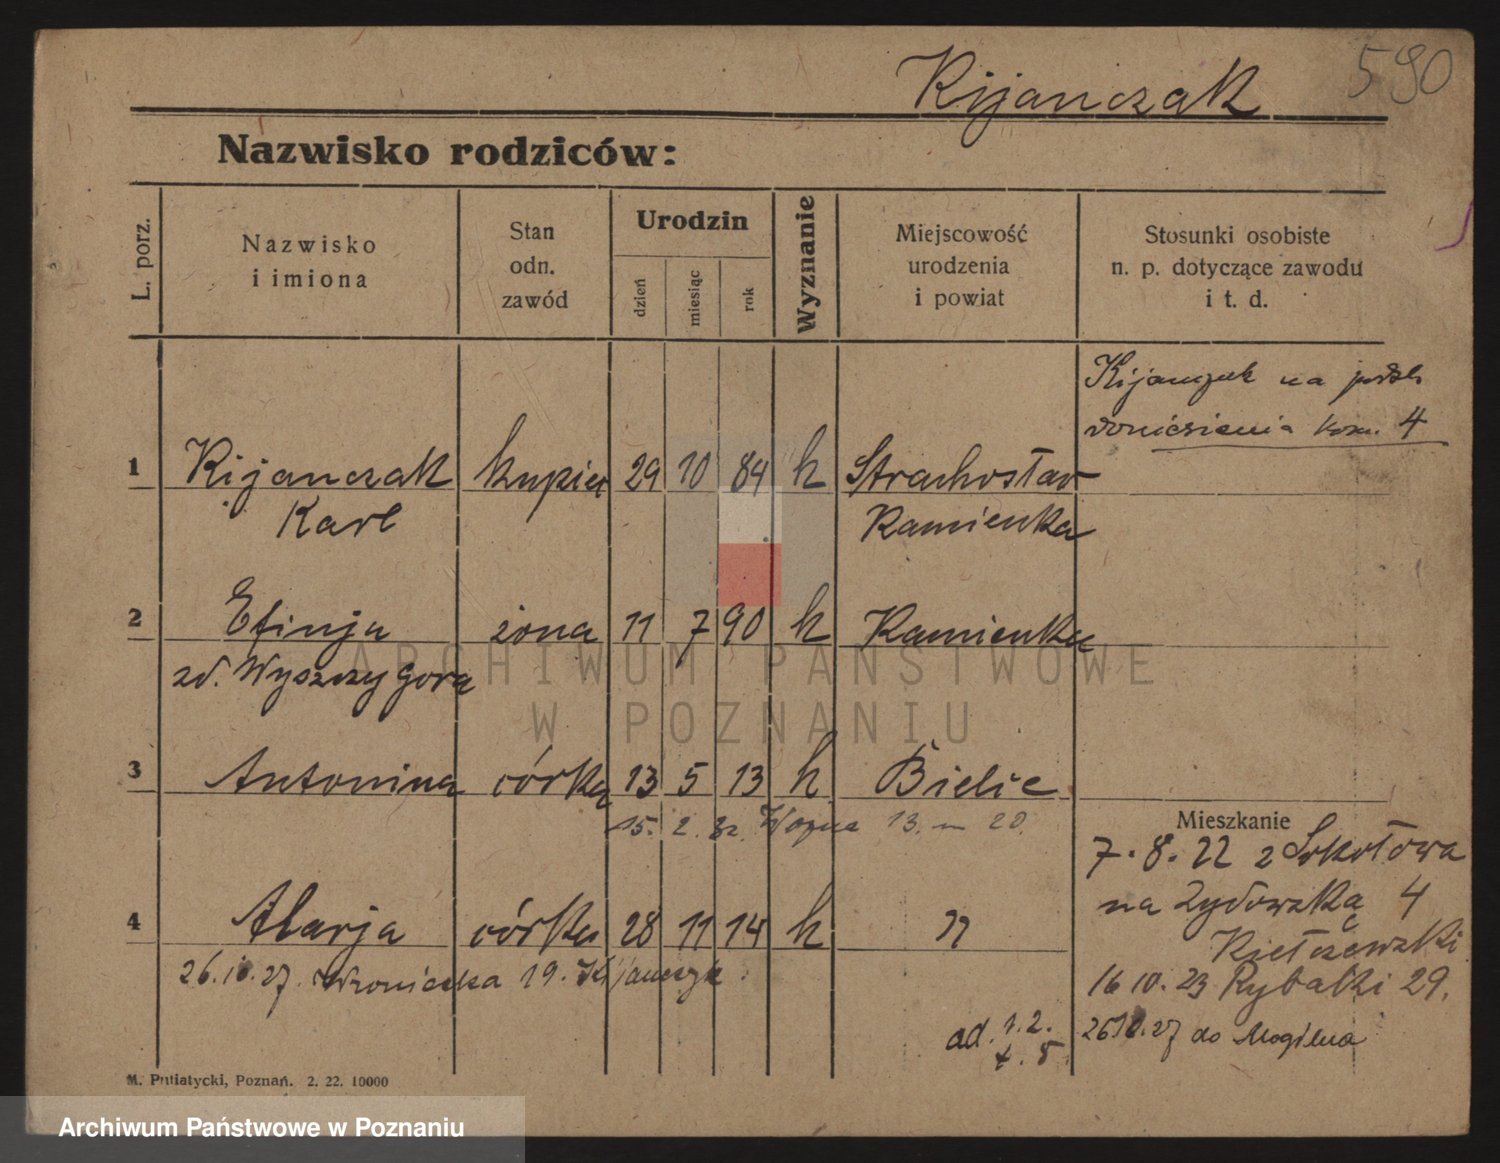 590
Kijanczak
Nazwisko rodziców:
L. porz.
Nazwisko
i imiona
Stan
odn.
zawód
Urodzin
dzień
miesiąc
rok
Wyznanie
Miejscowość
urodzenia
i powiat
Stosunki osobiste
n. p. dotyczące zawodu
i t. d.
Kijanczuk na podst.
doniesienia kom. 4
1 Kijanczak kupiec 29 10 84 k Strachosław
Karl Kamienka
2 Efinja żona 11 7 90 k Kamienka
zd. Wyszczygora
3 Antonina córka 13 5 13 k Bielic
15. 2. 32 Wozna 13. m 20.
Mieszkanie
7. 8. 22 z Sokołowa
na Żydowską 4
4 Marja córka 28 11 14 k "
26.10.27. Wroniecka 19. Kijanczyk
16 10. 23 Rybaki 29.
ad. 1. 2.
26 10. 27 do Mogilna
M. Putiatycki, Poznań. 2. 22. 10000
ARCHIWUM PAŃSTWOWE
W POZNANIU
Archiwum Państwowe w Poznaniu